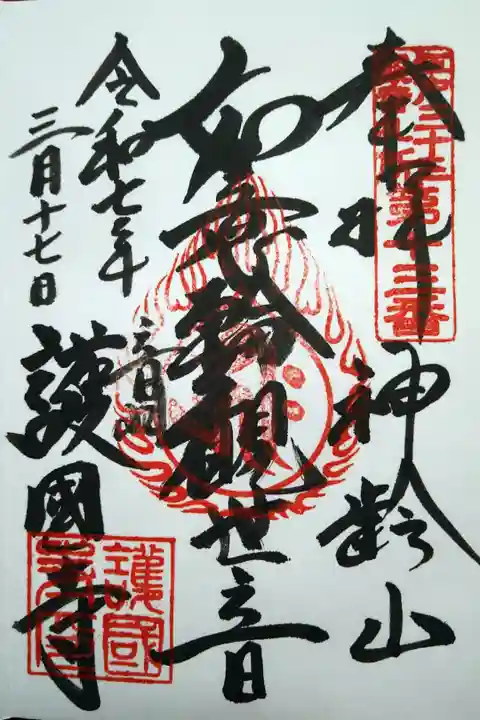 奉拝 神齢山
第十三番
如意輪観世音
令和七年
三月十七日
護國寺
護國